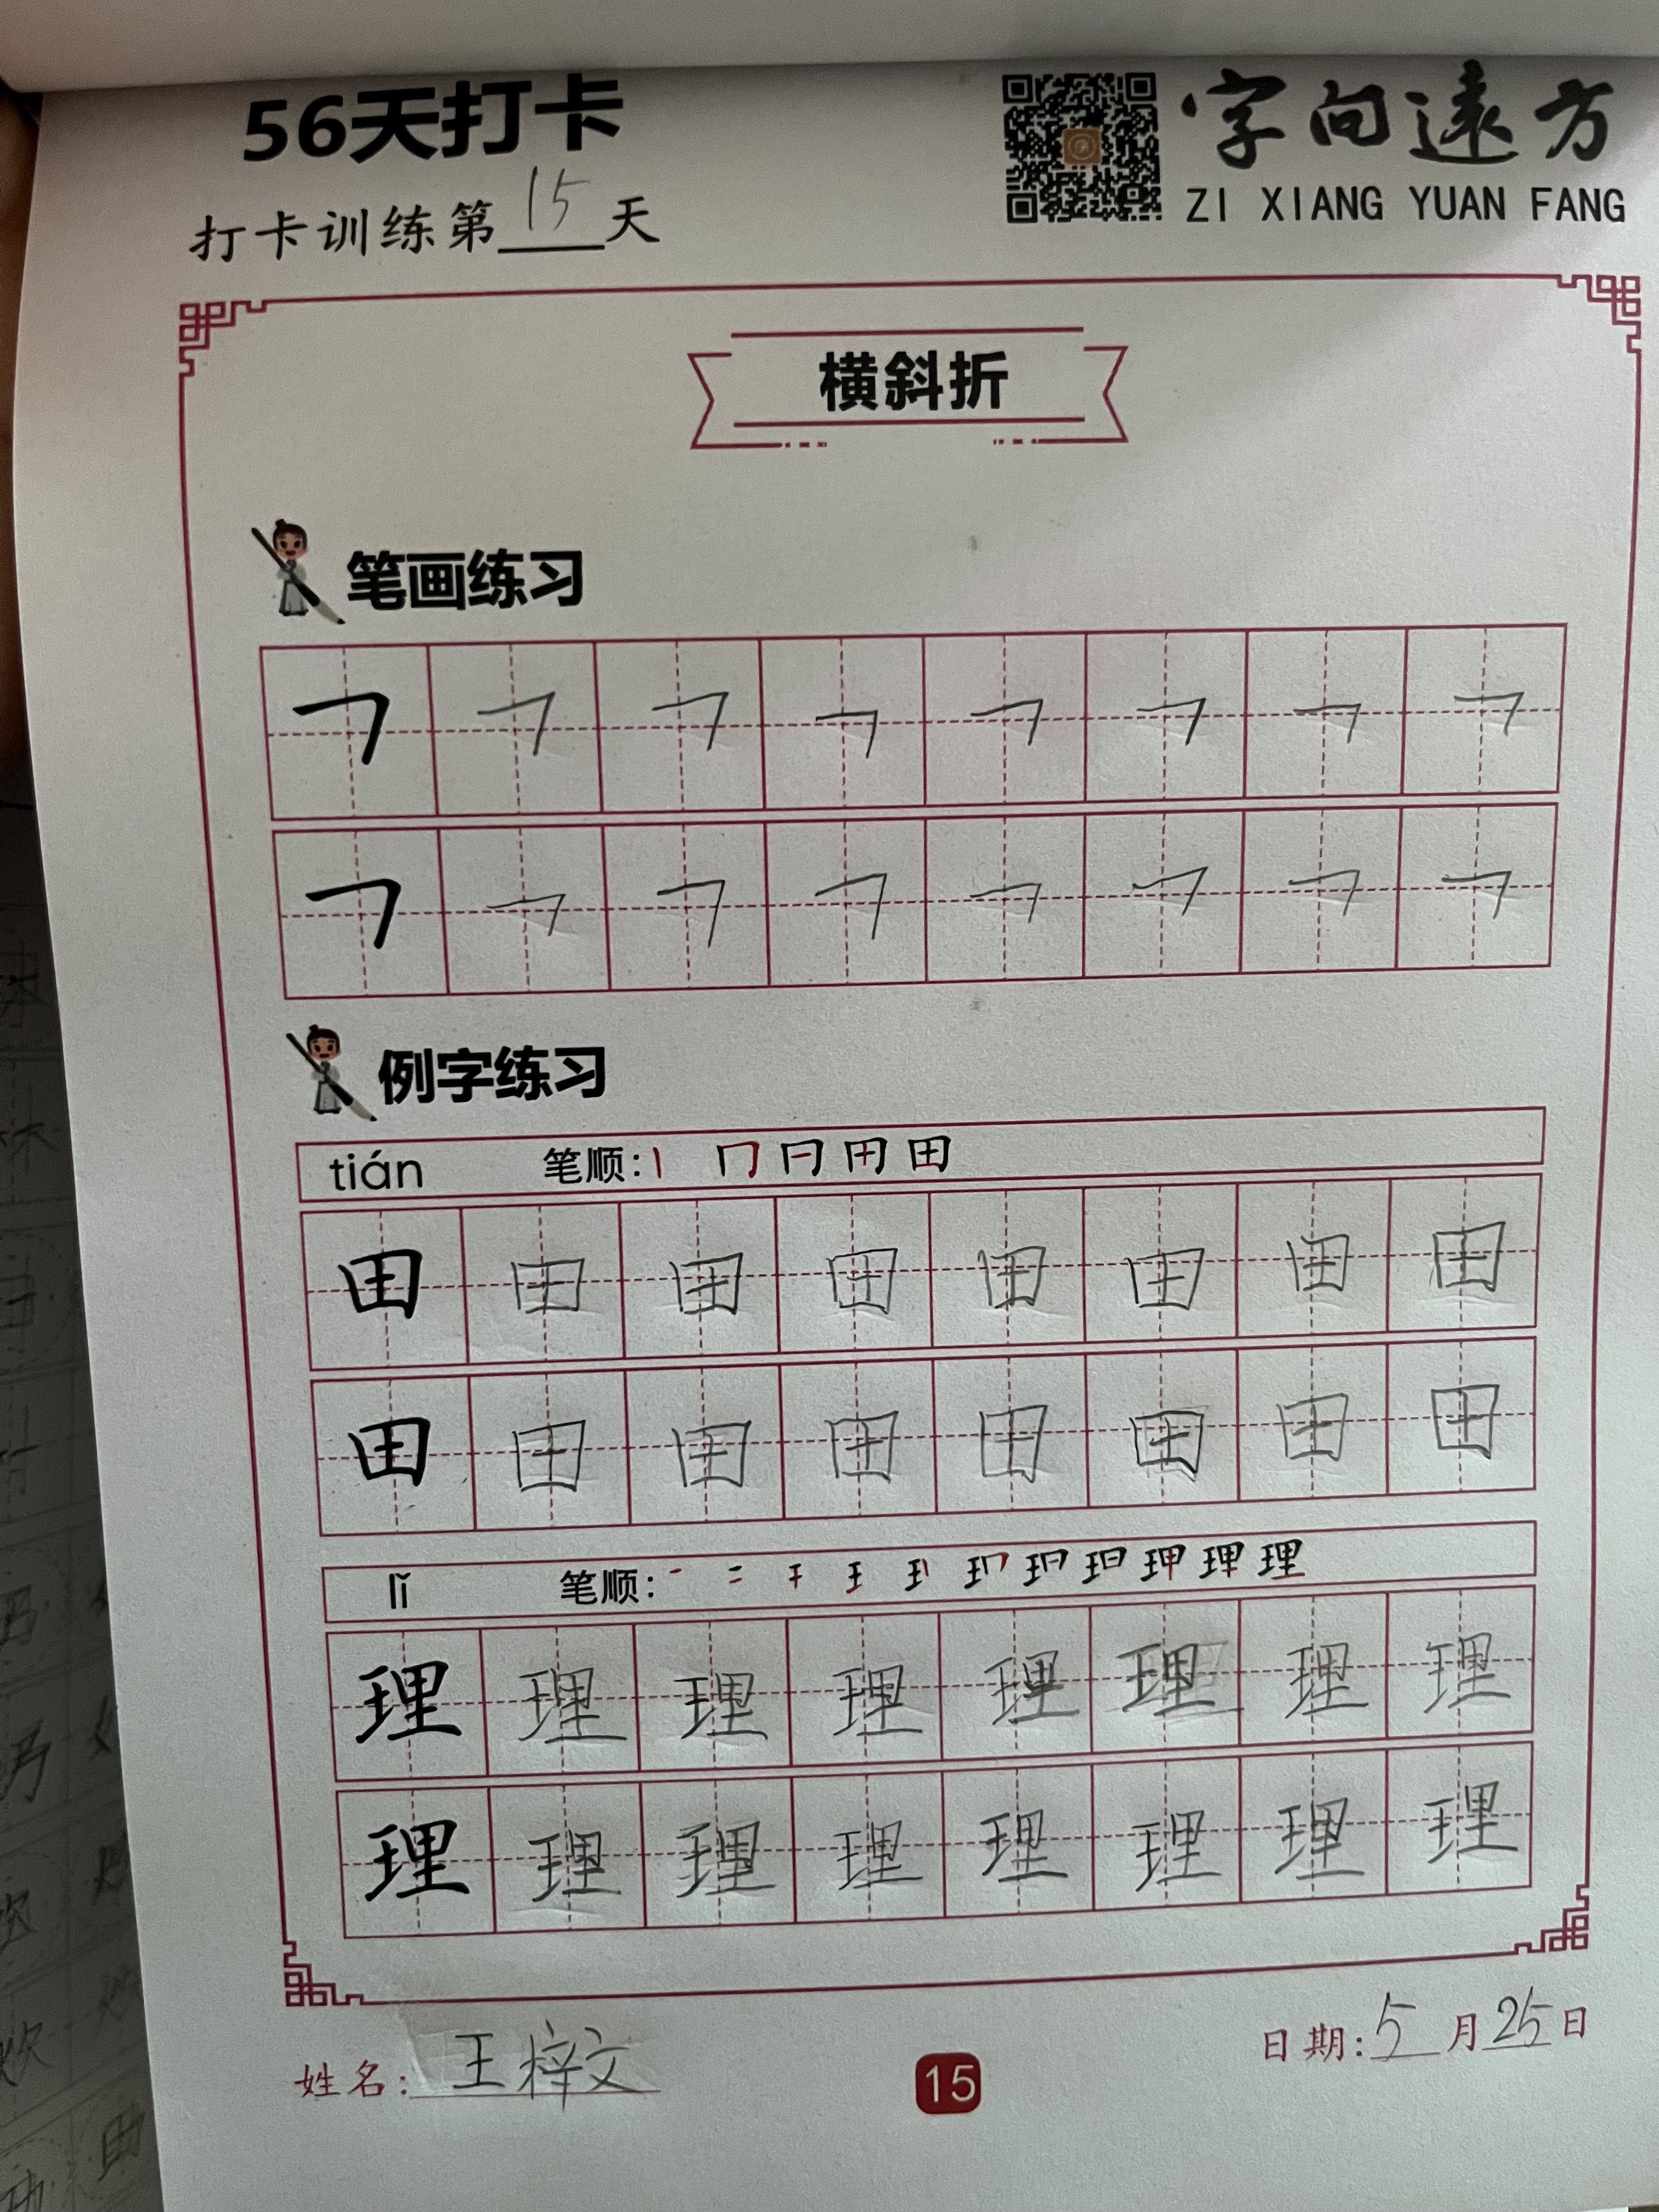 56天打卡
字向远方
ZI XIANG YUAN FANG
打卡训练第15天
横斜折
笔画练习
㇕ ㇕ ㇕ ㇕ ㇕ ㇕ ㇕ ㇕
㇕ ㇕ ㇕ ㇕ ㇕ ㇕ ㇕ ㇕
例字练习
tián 笔顺:丨 冂 曰 田 田
田 田 田 田 田 田 田 田
田 田 田 田 田 田 田 田
lǐ 笔顺:
理 理 理 理 理 理 理 理
理 理 理 理 理 理 理 理
姓名:王梓文
15
日期:5月25日